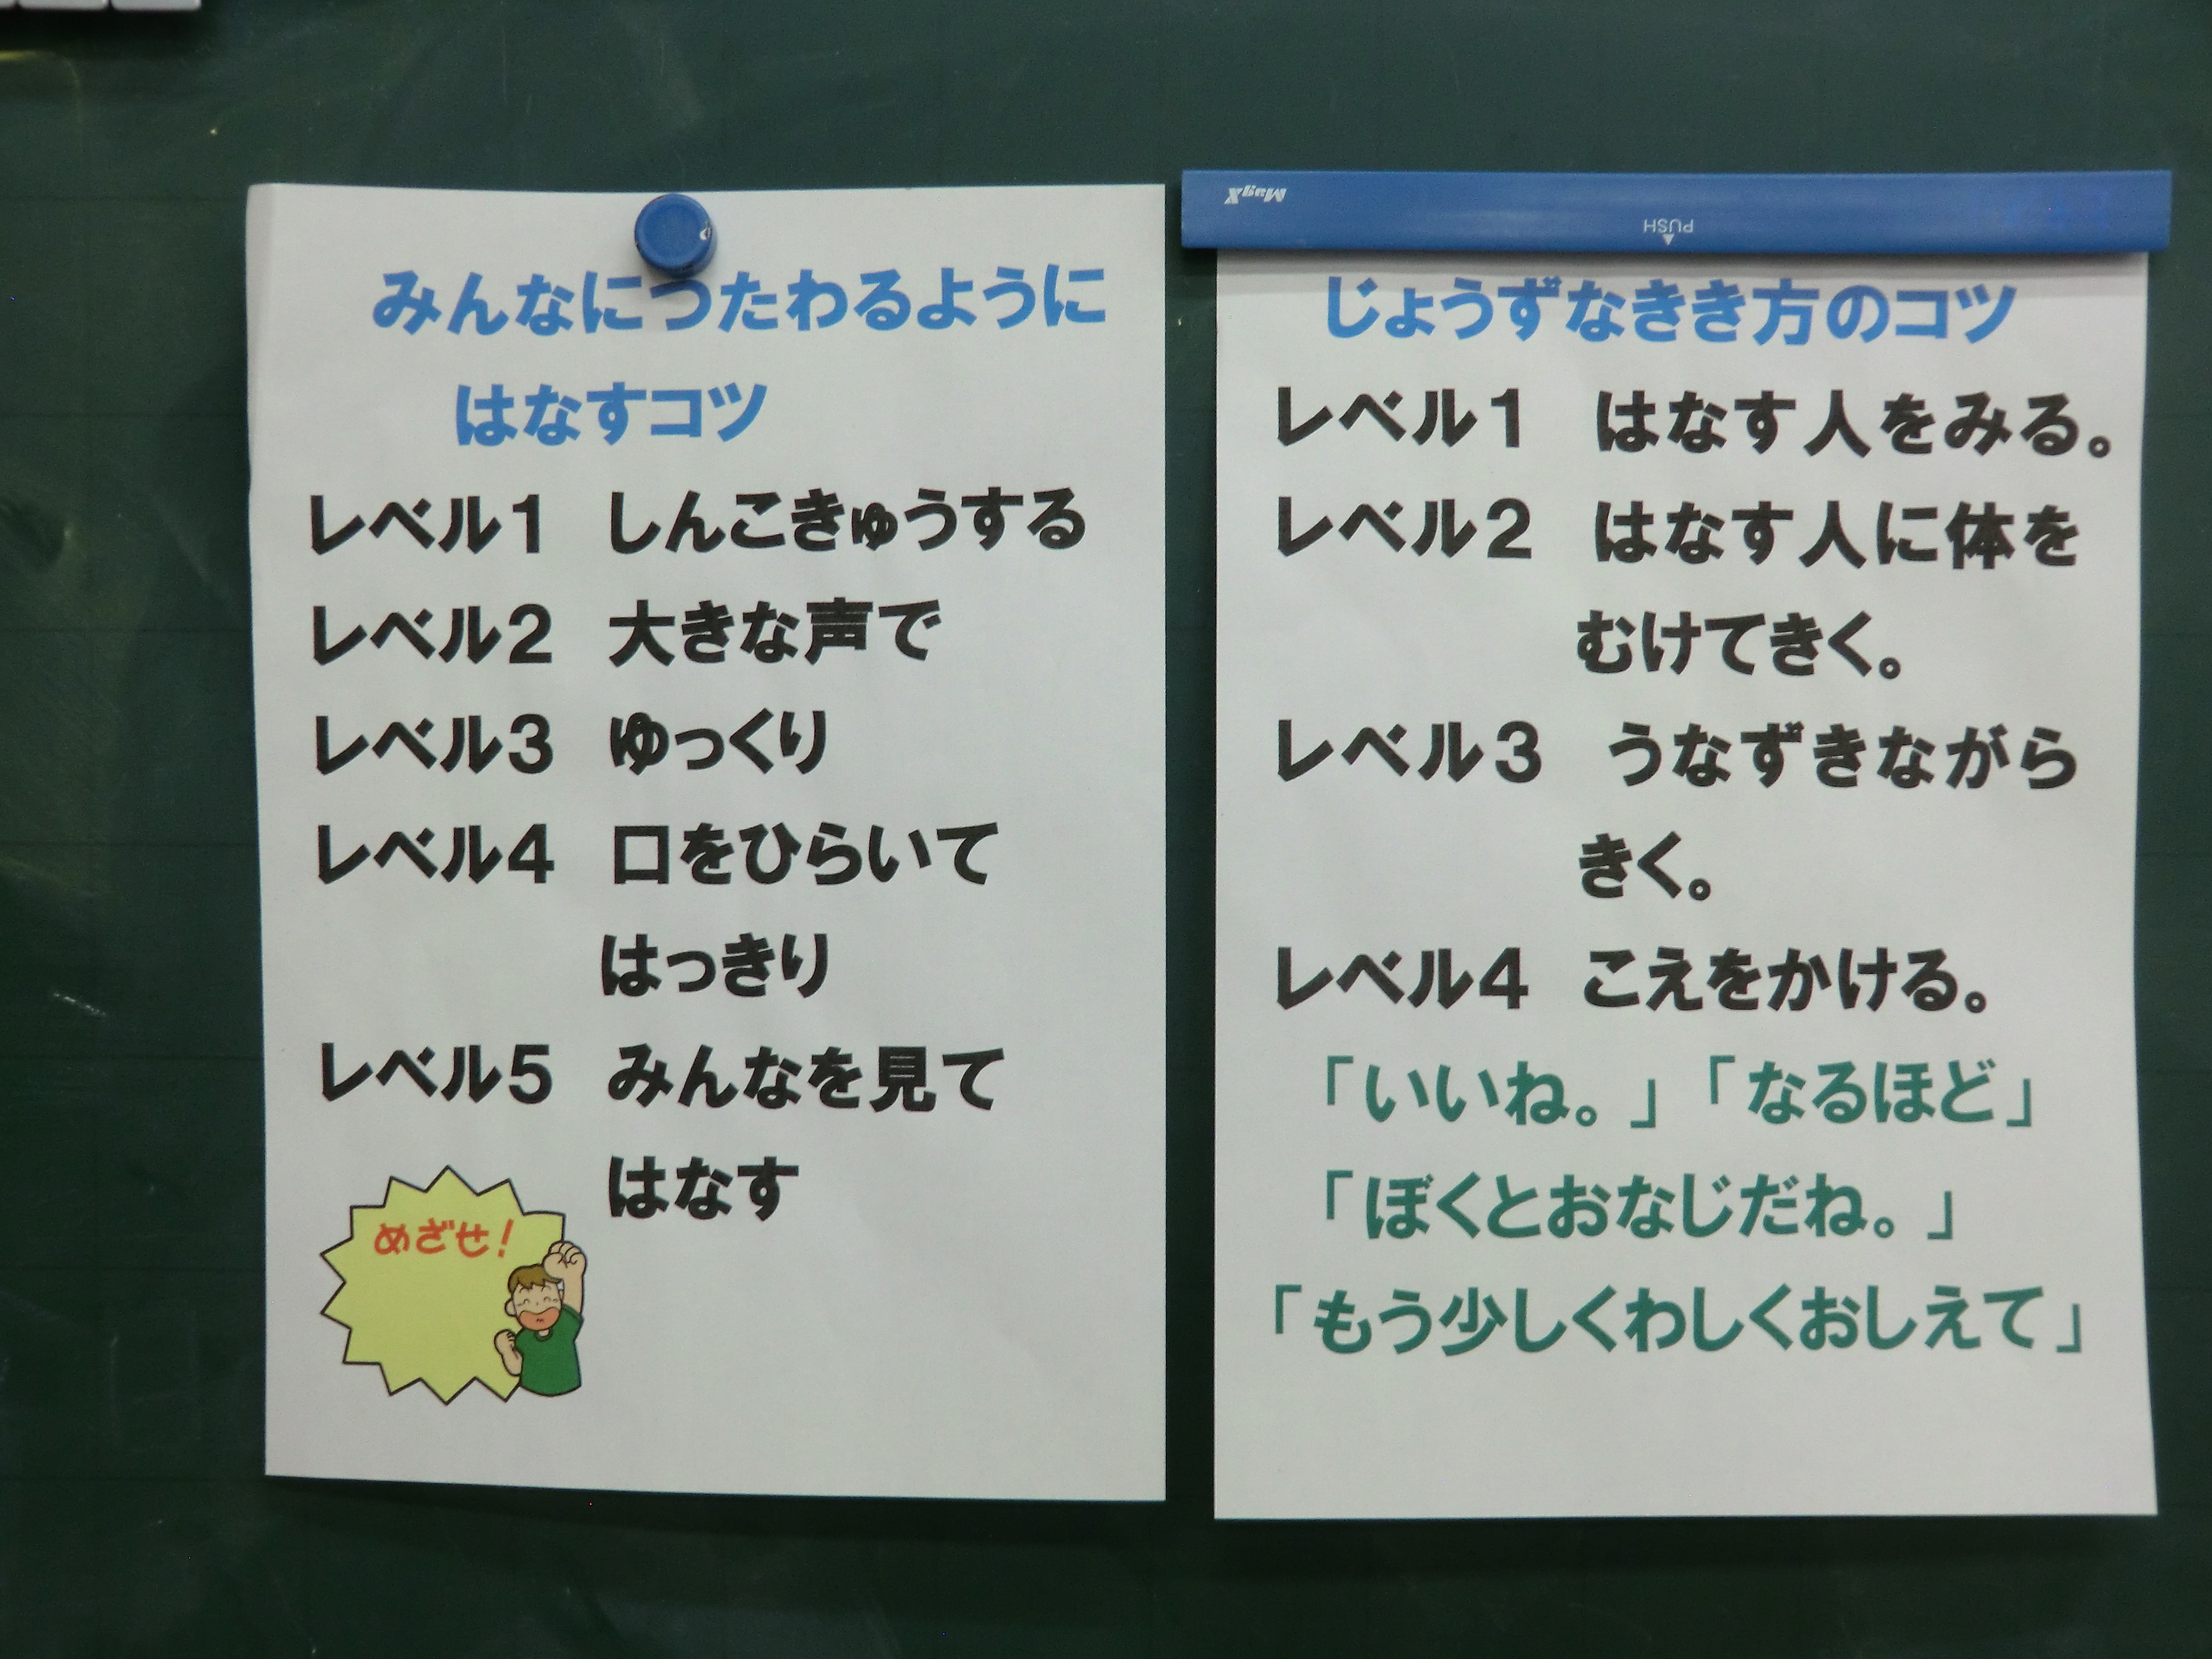 みんなにつたわるように
はなすコツ
レベル1 しんこきゅうする
レベル2 大きな声で
レベル3 ゆっくり
レベル4 口をひらいて
はっきり
レベル5 みんなを見て
はなす
めざせ!
MagX
PUSH
じょうずなきき方のコツ
レベル1 はなす人をみる。
レベル2 はなす人に体を
むけてきく。
レベル3 うなずきながら
きく。
レベル4 こえをかける。
「いいね。」「なるほど」
「ぼくとおなじだね。」
「もう少しくわしくおしえて」